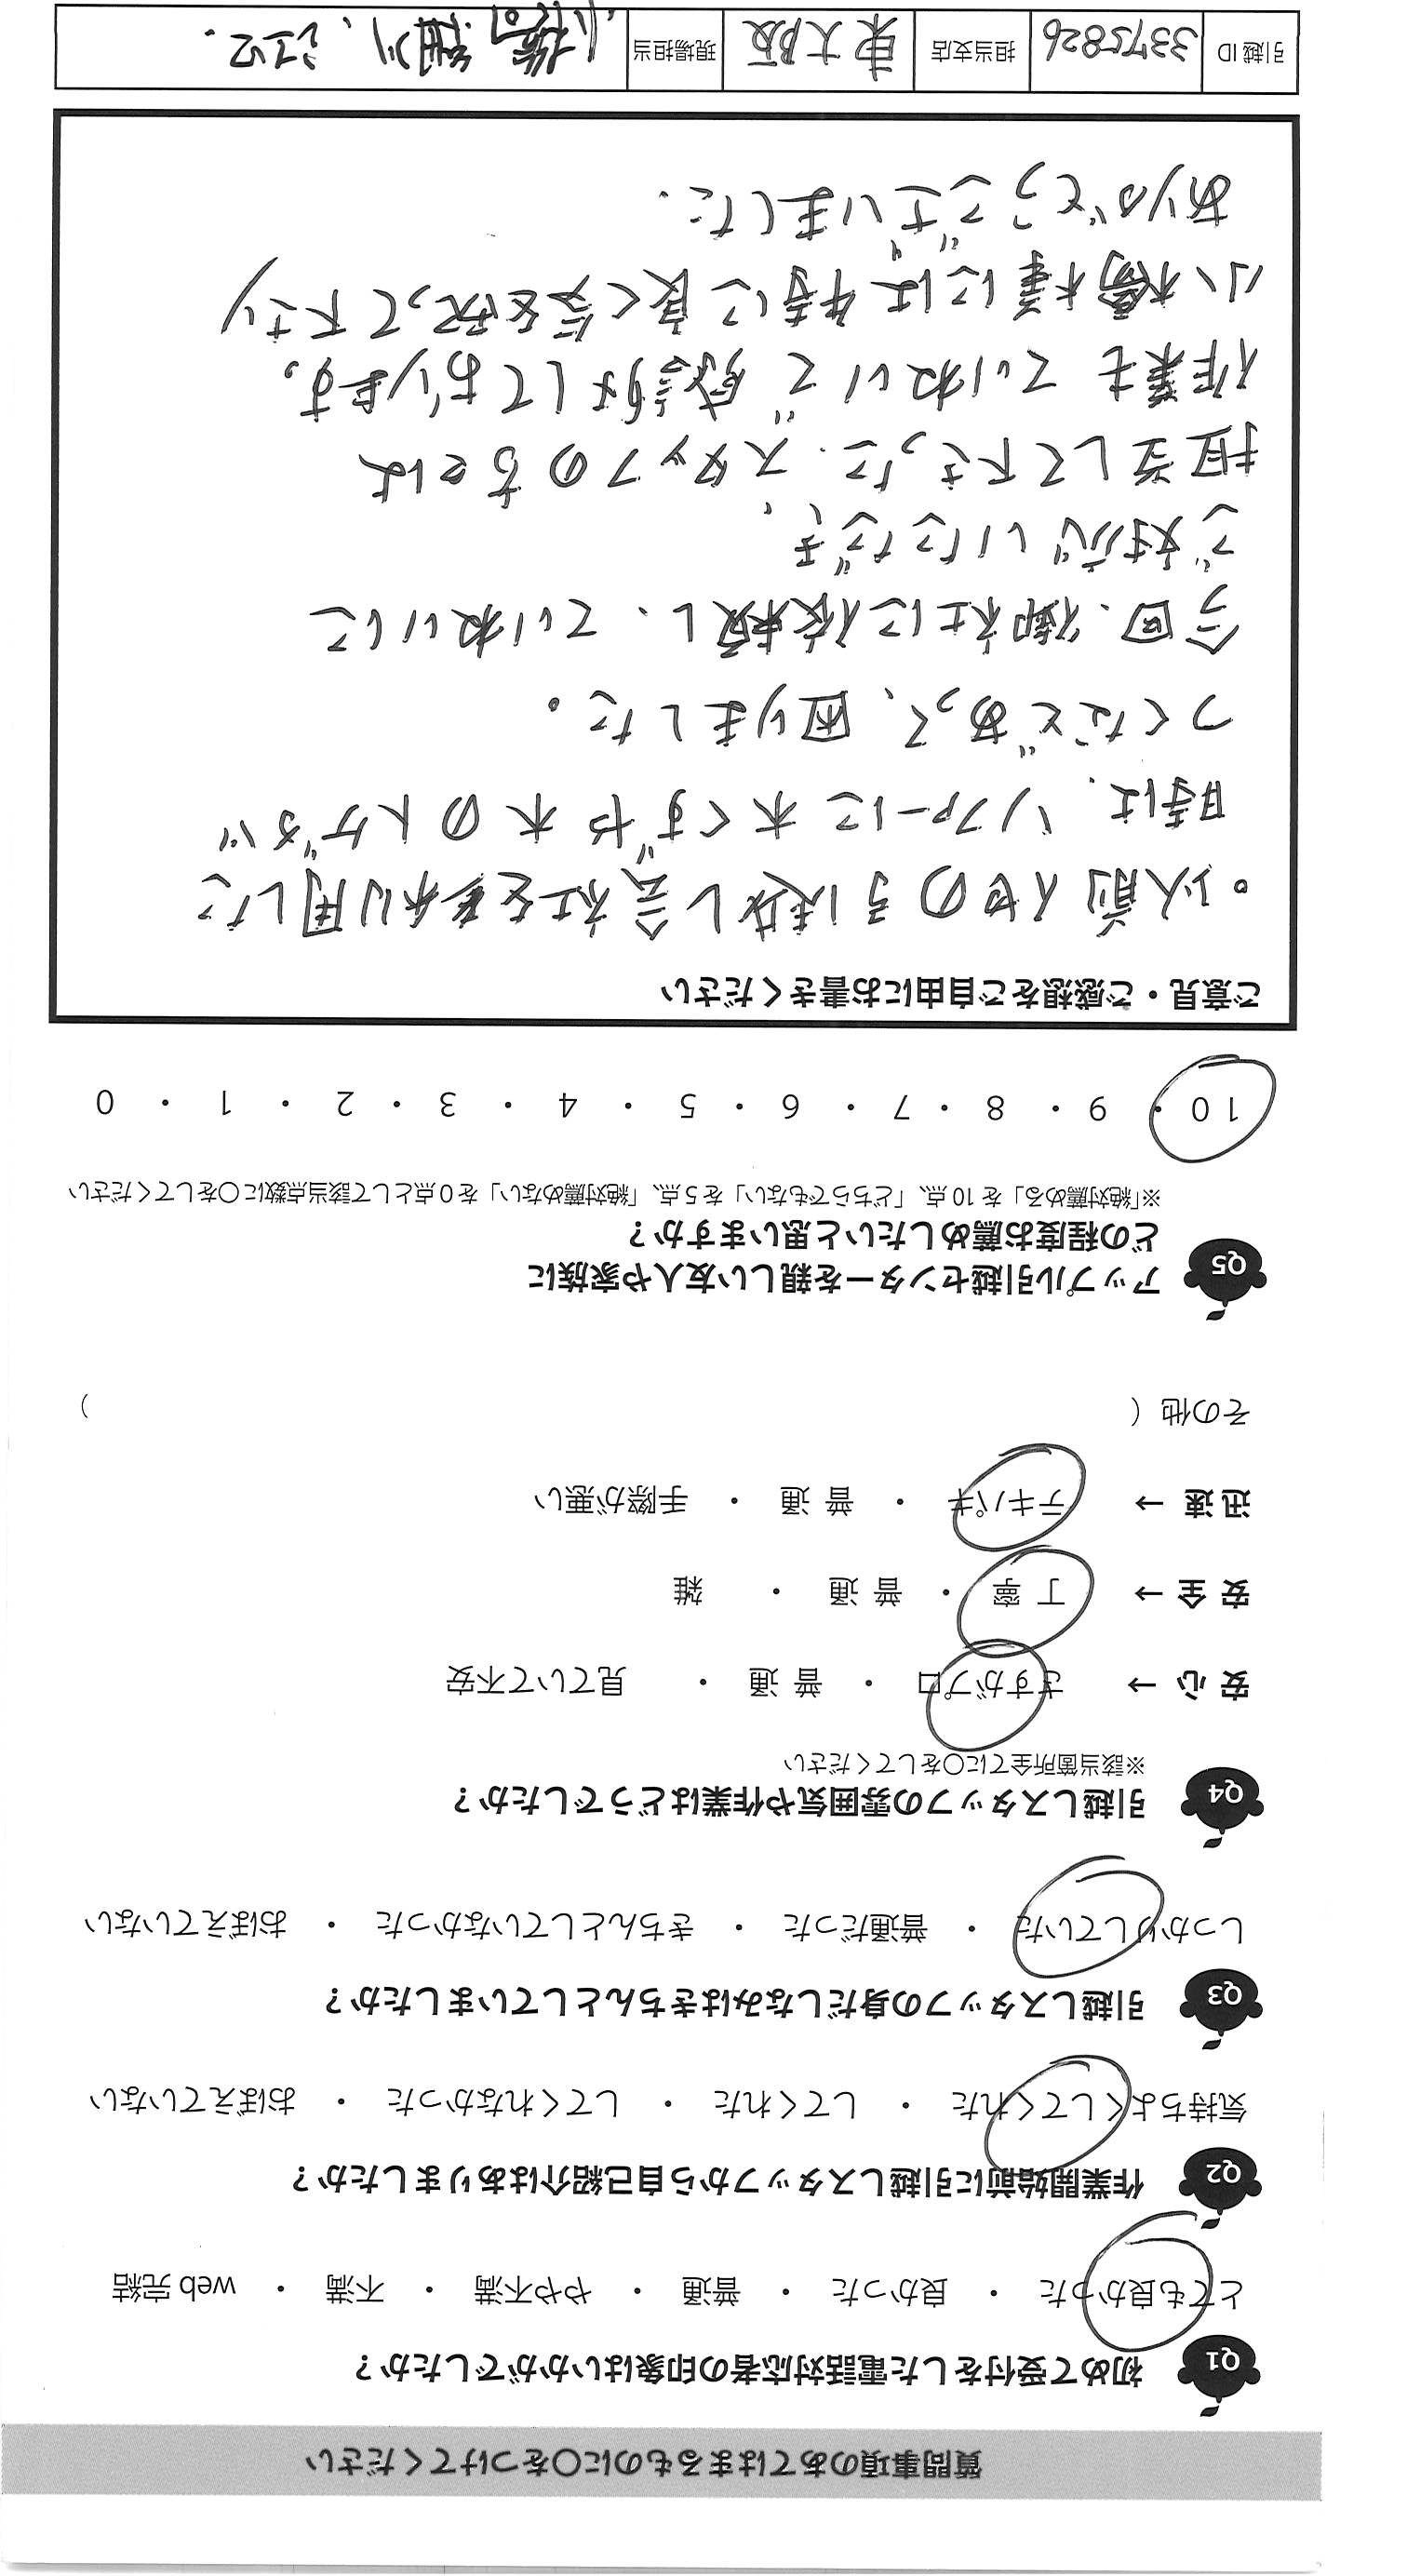 質問事項のあてはまるものに〇をつけてください
Q1 初めて受付をした電話対応者の印象はいかがでしたか？
とても良かった ・ 良かった ・ 普通 ・ やや不満 ・ 不満 ・ web 完結
Q2 作業開始前に引越しスタッフから自己紹介はありましたか？
気持ちよくしてくれた ・ してくれた ・ してくれなかった ・ おぼえていない
Q3 引越しスタッフの身だしなみはきちんとしていましたか？
しっかりしていた ・ 普通だった ・ きちんとしていなかった ・ おぼえていない
Q4 引越しスタッフの雰囲気や作業はどうでしたか？
※該当箇所全てに〇をしてください
安 心 → さすがプロ ・ 普 通 ・ 見ていて不安
安 全 → 丁 寧 ・ 普 通 ・ 雑
迅 速 → テキパキ ・ 普 通 ・ 手際が悪い
その他（ ）
Q5 アップル引越センターを親しい友人や家族に
どの程度お薦めしたいと思いますか？
※「絶対薦める」を 10 点、「どちらでもない」を 5 点、「絶対薦めない」を 0 点として該当点数に〇をしてください
10 ・ 9 ・ 8 ・ 7 ・ 6 ・ 5 ・ 4 ・ 3 ・ 2 ・ 1 ・ 0
ご意見・ご感想をご自由にお書きください
・以前他の引越し会社を利用した
時は、ソファーに木くずや木のトゲが
つくなどあって、困りました。
今回、御社に依頼し、ていねいに
ご対応いただき、
担当して下さった、スタッフの方々は
作業もていねいで感謝しております。
小橋様には特に良く気を配って下さり
ありがとうございました.
引越 ID 3375826 担当支店 東大阪 現場担当 小橋、